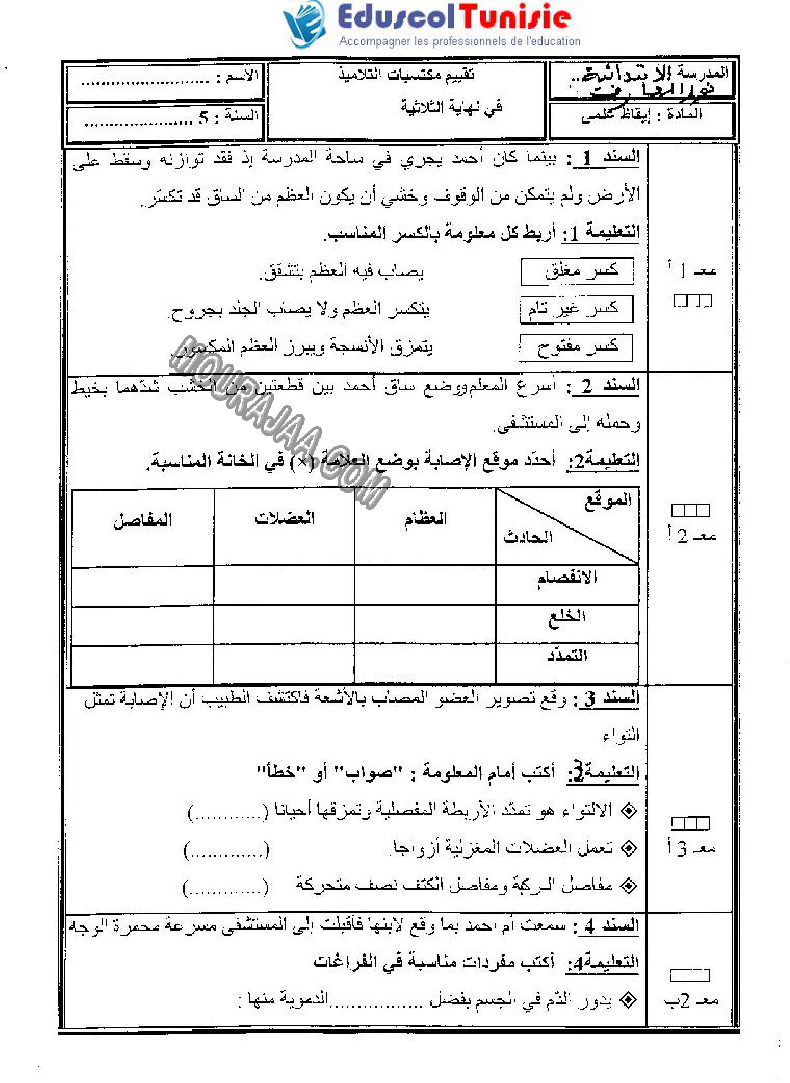 EduscolTunisie
Accompagner les professionnels de l'education
المدرسة الابتدائية
المادة : إيقاظ علمي
تقييم مكتسبات التلاميذ
في نهاية الثلاثية
الاسم : ..........................
السنة : 5 .....................
السند 1 : بينما كان أحمد يجري في ساحة المدرسة إذ فقد توازنه وسقط على
الأرض ولم يتمكن من الوقوف وخشي أن يكون العظم من الساق قد تكسّر.
التعليمة 1: أربط كل معلومة بالكسر المناسب.
معـ 1 أ
كسر مغلق يصاب فيه العظم بتشقق.
كسر غير تام يتكسر العظم ولا يصاب الجلد بجروح.
كسر مفتوح يتمزق الأنسجة ويبرز العظم المكسور.
MOURAJAA.COM
السند 2 : أسرع المعلم ووضع ساق أحمد بين قطعتين من الخشب شدّهما بخيط
وحمله إلى المستشفى.
التعليمة2: أحدّد موقع الإصابة بوضع العلامة (×) في الخانة المناسبة.
معـ 2 أ
الموقع
الحادث
العظام
العضلات
المفاصل
الانفصام
الخلع
التمدّد
السند 3 : وقع تصوير العضو المصاب بالأشعة فاكتشف الطبيب أن الإصابة تمثل
التواء
التعليمة3: أكتب أمام المعلومة : "صواب" أو "خطأ"
الالتواء هو تمدّد الأربطة المفصلية وتمزقها أحيانا (............)
تعمل العضلات المغزلية أزواجا. (............)
معـ 3 أ
مفاصل الركبة ومفاصل الكتف نصف متحركة (............)
السند 4 : سمعت أم احمد بما وقع لابنها فأقبلت إلى المستشفى مسرعة محمرة الوجه
التعليمة4: أكتب مفردات مناسبة في الفراغات
معـ 2ب
يدور الدّم في الجسم بفضل .................الدموية منها :